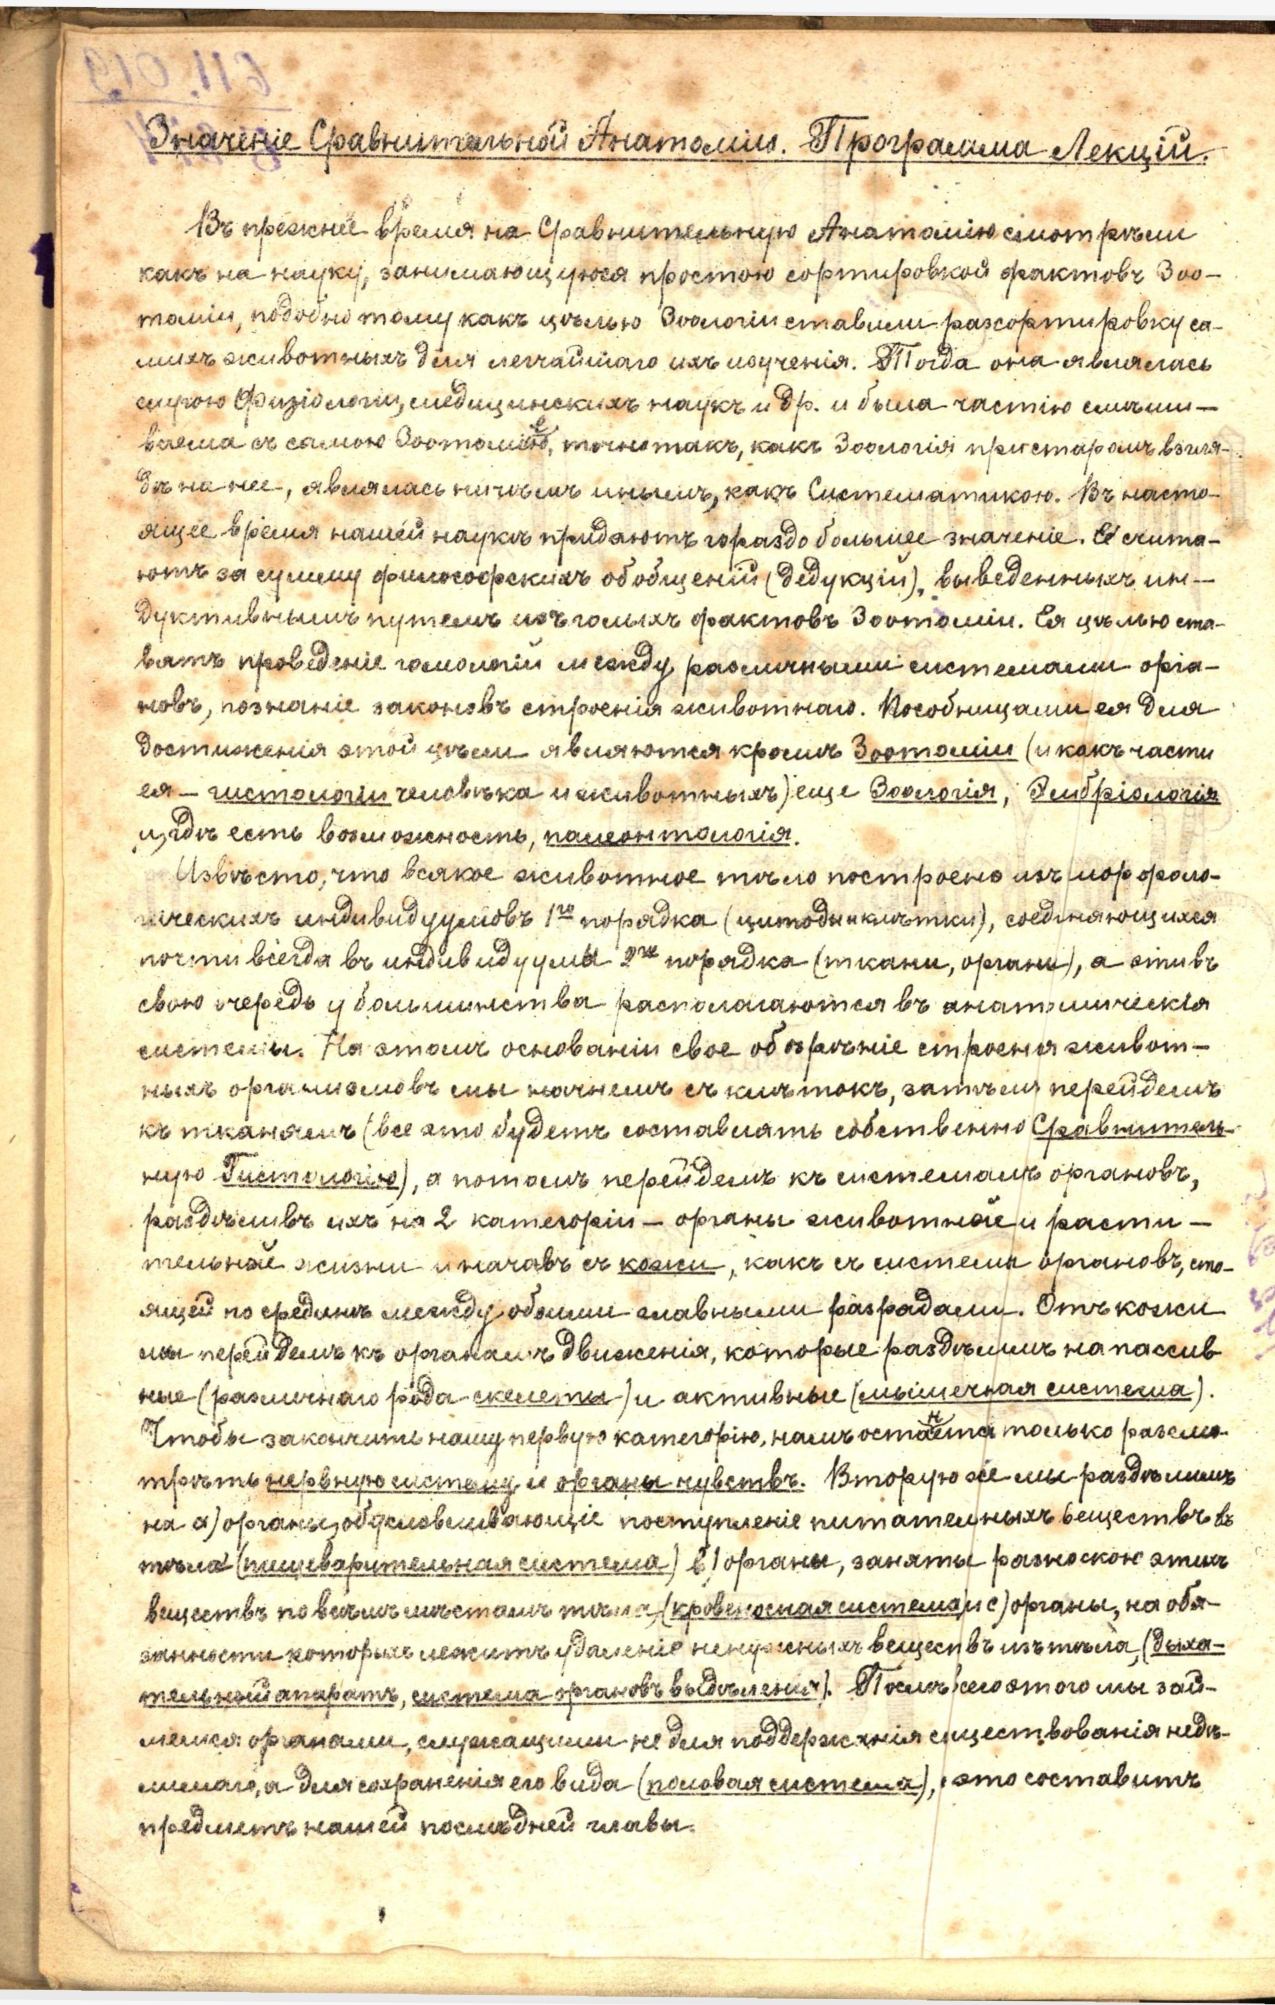 Значеніе Сравнительной Анатоміи. Программа Лекцій.
Въ прежнее время на Сравнительную Анатомію смотрѣли
какъ на науку, занимающуюся простою сортировкой фактовъ Зоо-
томіи, подобно тому какъ цѣлью Зоологіи ставили разсортировку са-
михъ животныхъ для легчайшаго ихъ изученія. Тогда она являлась
слугою Физіологіи, медицинскихъ наукъ и др. и была частію смѣши-
ваема съ самою Зоотоміею, точно такъ, какъ Зоологія при старомъ взгля-
дѣ на нее, являлась ничѣмъ инымъ, какъ Систематикою. Въ насто-
ящее время нашей наукѣ придаютъ гораздо большее значеніе. Её счита-
ютъ за сумму философскихъ обобщеній (дедукцій), выведенныхъ ин-
дуктивнымъ путемъ изъ голыхъ фактовъ Зоотоміи. Ея цѣлью ста-
вятъ проведеніе гомологій между различными системами орга-
новъ, познаніе законовъ строенія животнаго. Пособницами ея для
достиженія этой цѣли являются кромѣ Зоотоміи (и какъ части
ея — гистологіи человѣка и животныхъ) еще Зоологія, Эмбріологія
и, гдѣ есть возможность, палеонтологія.
Извѣсто, что всякое животное тѣло построено изъ морфоло-
гическихъ индивидуумовъ 1го порядка (цитоды и клѣтки), соединяющихся
почти всегда въ индивидуумы 2го порядка (ткани, органы), а эти въ
свою очередь у большинства располагаются въ анатомическія
системы. На этомъ основаніи свое обозрѣніе строенія живот-
ныхъ организмовъ мы начнемъ съ клѣтокъ, затѣмъ перейдемъ
къ тканямъ (все это будетъ составлять собственно Сравнитель-
ную Гистологію), а потомъ перейдемъ къ системамъ органовъ,
раздѣливъ ихъ на 2 категоріи — органы животной и расти-
тельной жизни и начавъ съ кожи, какъ съ системы органовъ, сто-
ящей по срединѣ между обоими главными разрядами. Отъ кожи
мы перейдемъ къ органамъ движенія, которые раздѣлимъ на пассив
ные (различнаго рода скелеты) и активные (мышечная система).
Чтобы закончить нашу первую категорію, намъ останется только разсмо-
трѣть нервную систему и органы чувствъ. Вторую же мы раздѣлимъ
на а) органы, обусловливающіе поступленіе питательныхъ веществъ въ
тѣло (пищеварительная система) b) органы, заняты разноскою этихъ
веществъ по всѣмъ мѣстамъ тѣла, (кровеносная система) и с) органы, на обя-
занности которыхъ лежитъ удаленіе ненужныхъ веществъ изъ тѣла, (дыха-
тельный апаратъ, система органовъ выдѣленія). Послѣ всего этого мы зай-
мемся органами, служащими не для поддержанія существованія недѣ-
лимаго, а для сохраненія его вида (половая система), это составитъ
предметъ нашей послѣдней главы.